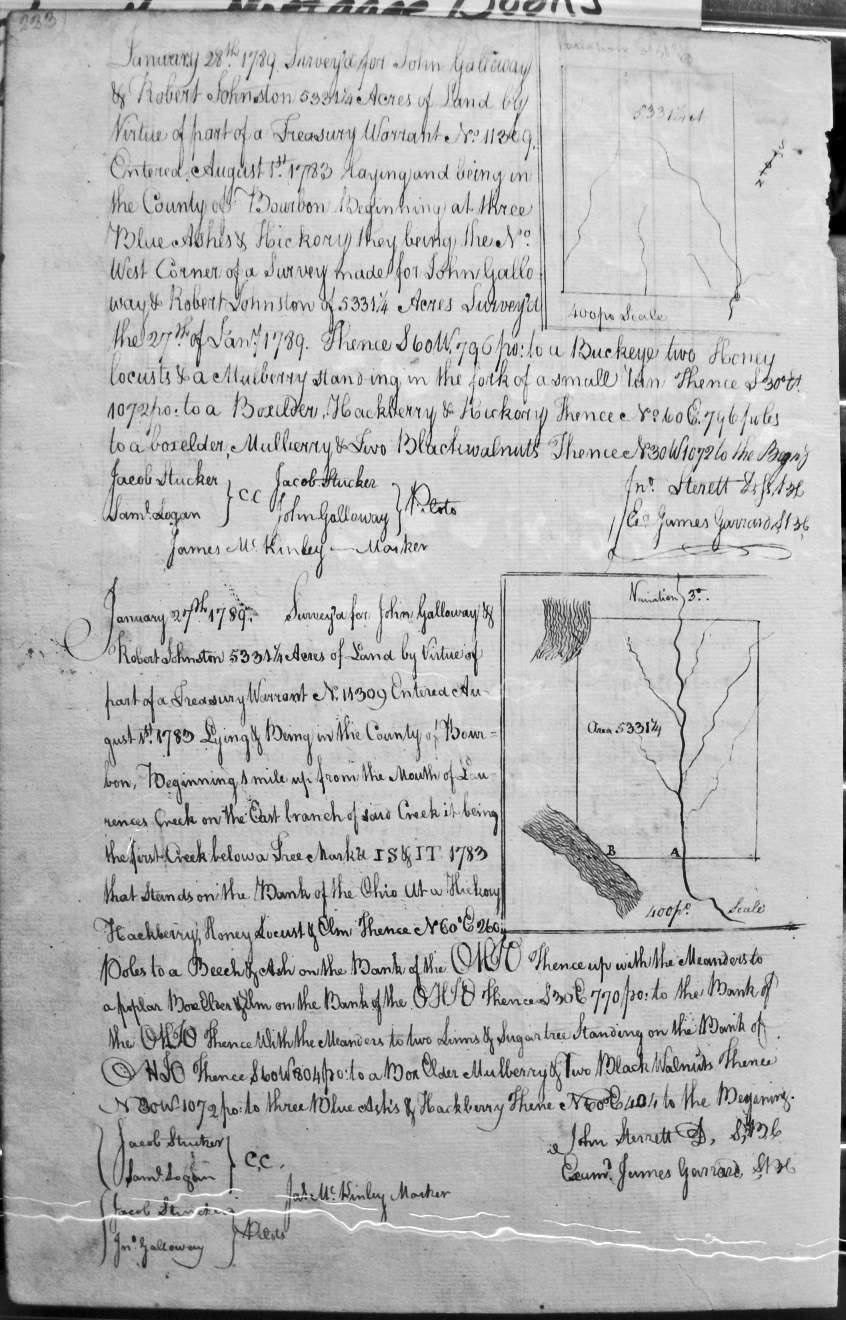 Mortgage Books
233
January 28th. 1789. Survey'd for John Galloway
& Robert Johnston 5331¼ Acres of Land by
Virtue of part of a Treasury Warrant No. 11309.
Entered August 1st. 1783 Laying and being in
the County of Bourbon Beginning at three
Blue Ashes & Hickory they being the No.
West Corner of a Survey made for John Gallo
way & Robert Johnston of 5331¼ Acres Survey'd
the 27th of Jany. 1789. Thence S60W, 796 po: to a Buckeye two Honey
locusts & a Mulberry standing in the fork of a small Thence S 30
1072 po: to a Boxelder, Hackberry & Hickory Thence No 60 E. 796 poles
to a boxelder, Mulberry & Two Blackwalnuts Thence N30W 1072 to the Begin'g
Jacob Stucker
Saml. Logan
C C
Jacob Stucker
John Galloway
Pilots
James Mc. Kinley — Marker
Jno. Sterett
James Garrard
5331¼ A
400 po Scale
January 27th 1789. Survey'd for John Galloway &
Robert Johnston 5331¼ Acres of Land by Virtue of
part of a Treasury Warrant N. 11309 Entered Au
gust 1st. 1783 Lying & Being in the County of Bour=
bon, Beginning 1 mile up from the Mouth of Lau
rences Creek on the East branch of said Creek it being
the first Creek below a Tree Mark'd I S & I T 1783
that Stands on the Bank of the Ohio at a Hickory
Hackberry, Honey Locust & Elm Thence N 60° E 260
Poles to a Beech & Ash on the Bank of the OHIO Thence up with the Meanders to
a poplar Box Elder & Elm on the Bank of the OHIO Thence S30E 770 po: to the Bank of
the OHIO Thence With the Meanders to two Linns & Sugartree Standing on the Bank of
OHIO Thence S60W 804 po: to a Box Elder Mulberry & Two Black Walnuts Thence
N 30W 1072 po: to three Blue Ash's & Hackberry Thene N60°E 404 to the Begining.
Jacob Stucker
Saml. Logan
C,C,
Jacob Stucker
Jno. Galloway
Pilots
Jas. Mc. Kinley Marker
John Sterrett
Examd. James Garrard
Variation 3°.
Area 5331¼
B
A
400 po.
Scale